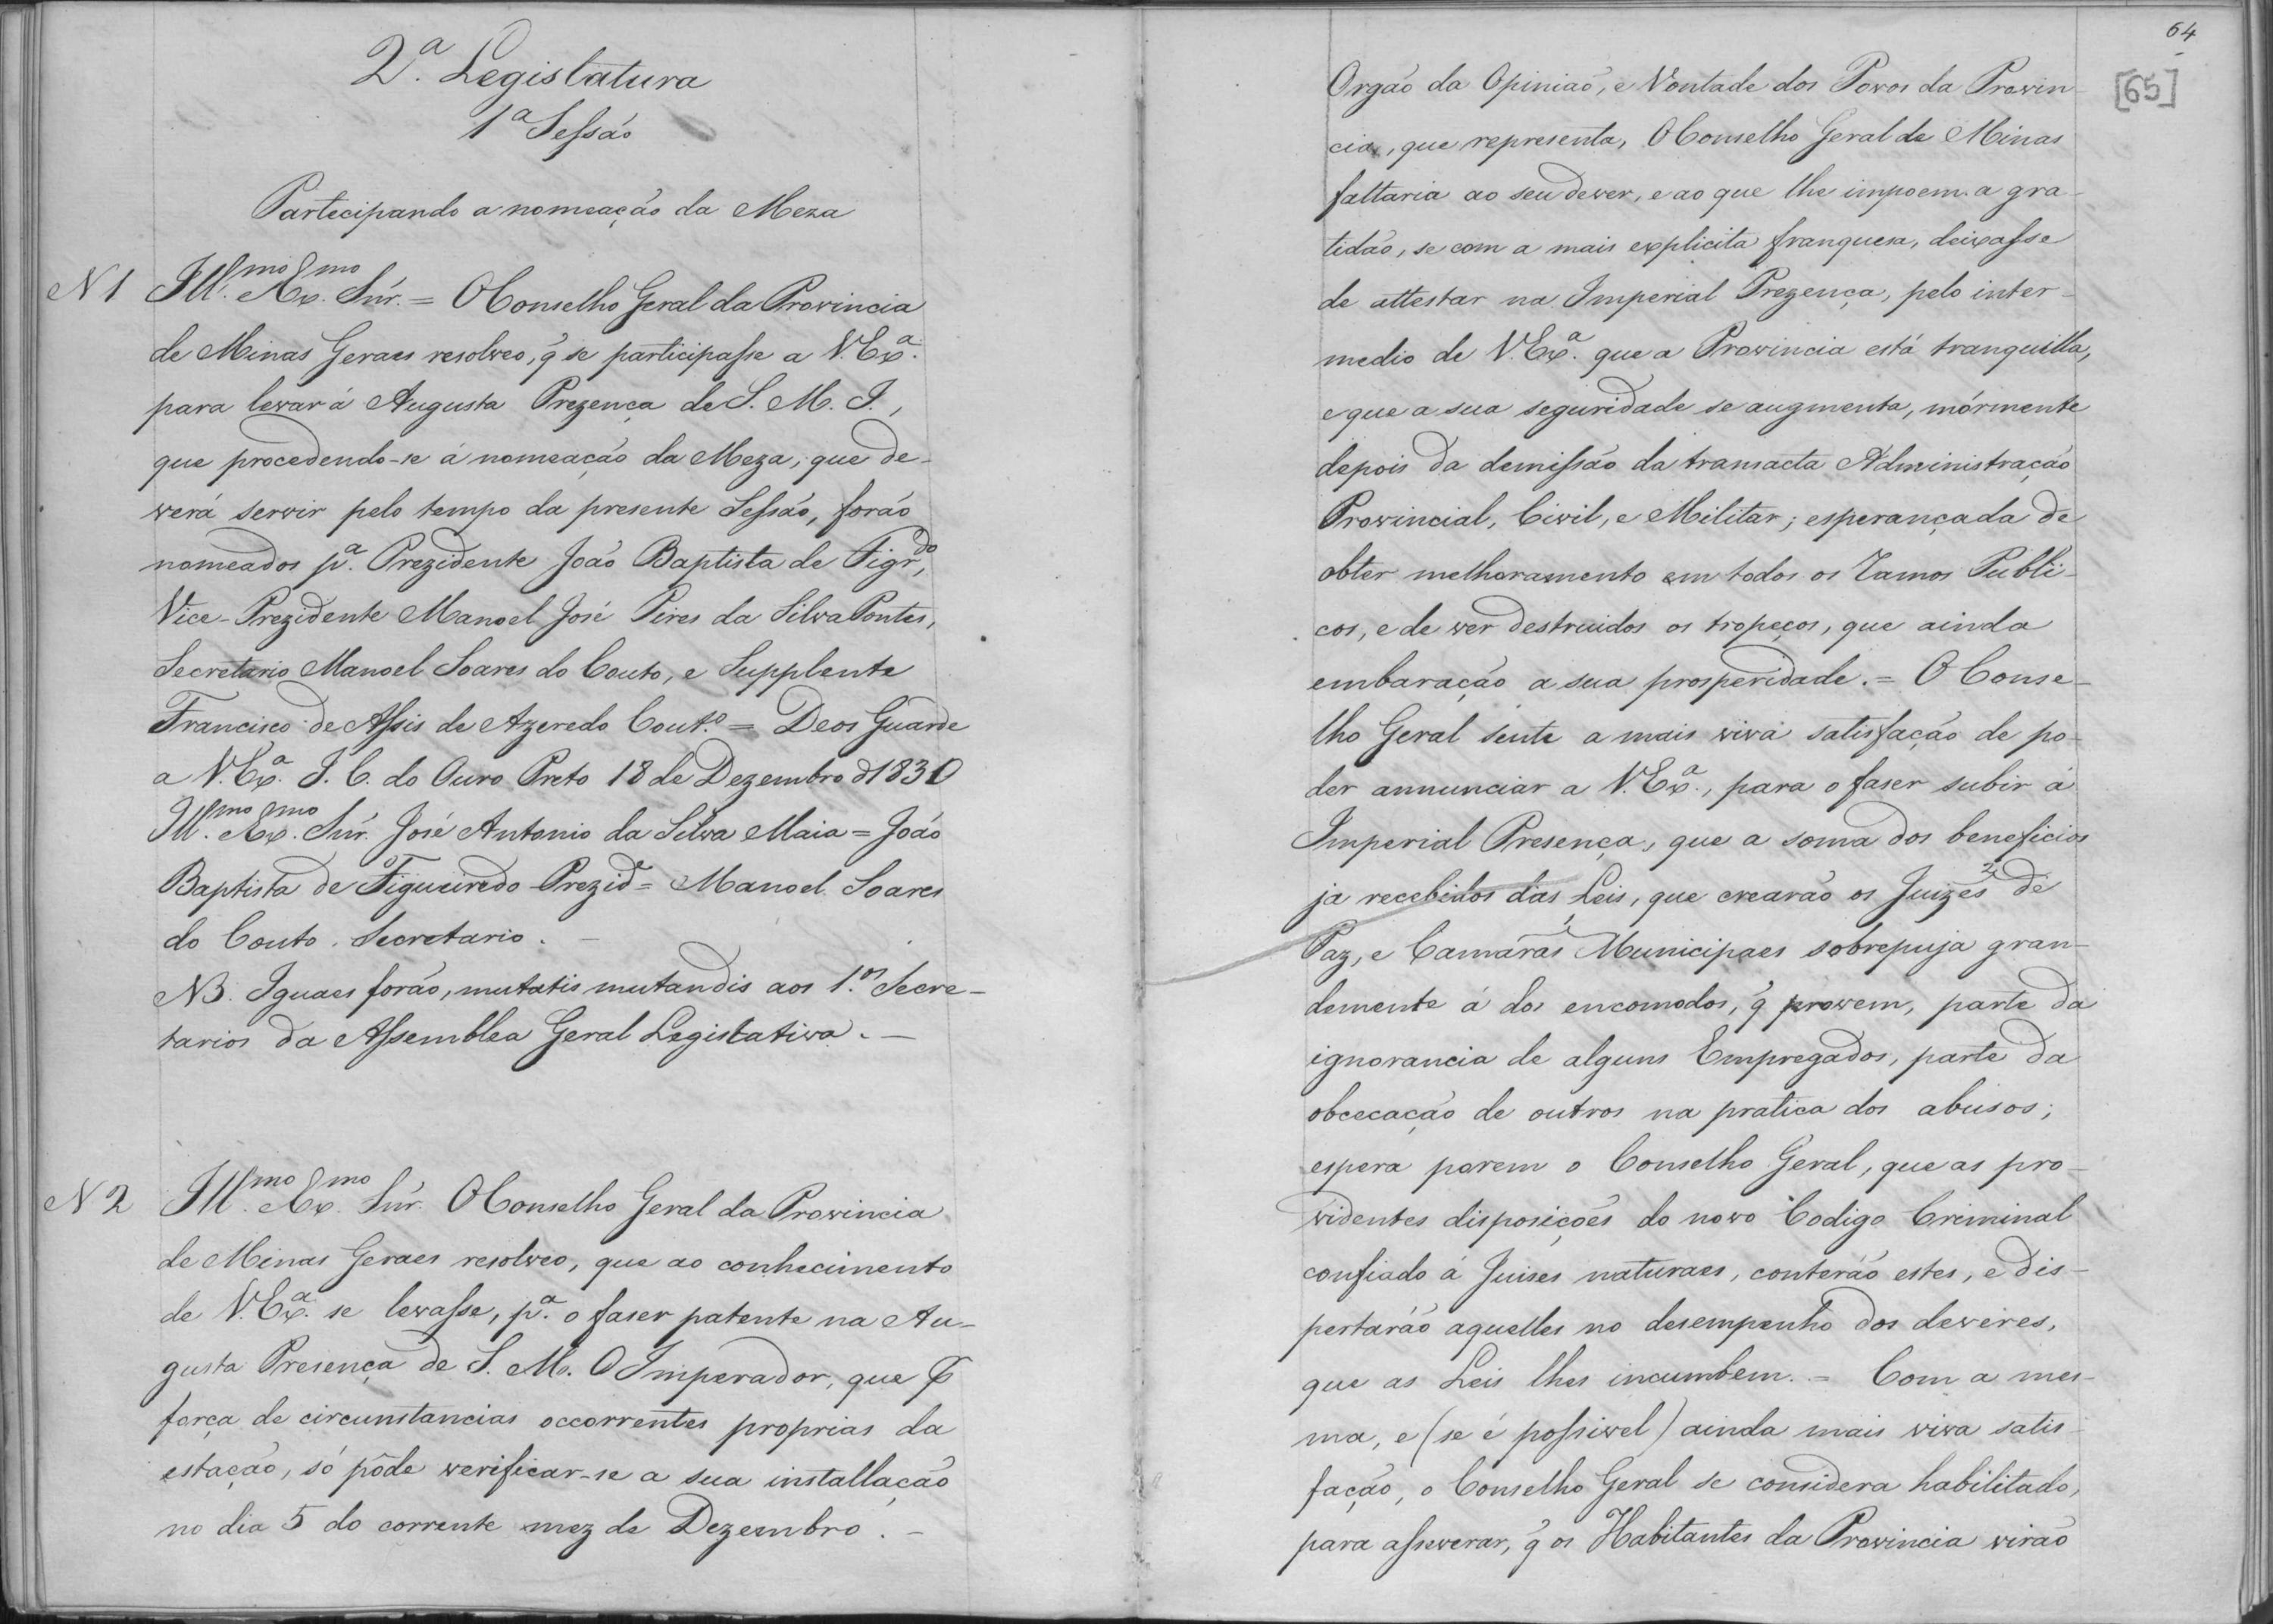 2.ª Legislatura
1.ª Sessão
Participando a nomeação da Meza
N 1 Ill.mo Ex.mo Snr. = O Conselho Geral da Provincia
de Minas Geraes resolveo, q̃ se participasse a V. Ex.ª
para levar á Augusta Prezença de S. M. I.,
que procedendo-se á nomeação da Meza, que de-
verá servir pelo tempo da presente Sessão, forão
nomeados p.ª Prezidente João Baptista de Figr.do,
Vice-Prezidente Manoel José Pires da Silva Pontes,
Secretario Manoel Soares do Couto, e Supplente
Francisco de Assis de Azeredo Cout.º = Deos Guarde
a V. Ex.ª I. C. do Ouro Preto 18 de Dezembro d 1830
Ill.mo Ex.mo Snr. José Antonio da Silva Maia = João
Baptista de Figueiredo Prezid.e = Manoel Soares
do Couto. Secretario. —
NB. Iguaes forão, mutatis mutandis aos 1.os Secre-
tarios da Assemblea Geral Legislativa. —
N 2 Ill.mo Ex.mo Snr. O Conselho Geral da Provincia
de Minas Geraes resolveo, que ao conhecimento
de V. Ex.ª se levasse, p.ª o faser patente na Au-
gusta Presença de S. M. O Imperador, que p̃
força de circunstancias occorrentes proprias da
estação, só pôde verificar-se a sua installação
no dia 5 do corrente mez de Dezembro. —
64
[65]
Orgão da Opinião, e Vontade dos Povos da Provin-
cia, que representa, O Conselho Geral de Minas
faltaria ao seu dever, e ao que lhe impoem a gra-
tidão, se com a mais explicita franquesa, deixasse
de attestar na Imperial Prezença, pelo inter-
medio de V. Ex.ª que a Provincia está tranquilla,
e que a sua seguridade se augmenta, mórmente
depois da demissão da transacta Administração
Provincial, Civil, e Militar; esperançada de
obter melhoramento em todos os ramos Publi-
cos, e de ver destruidos os tropeços, que ainda
embaração a sua prosperidade. = O Conse-
lho Geral sente a mais viva satisfação de po-
der annunciar a V. Ex.ª, para o faser subir á
Imperial Presença, que a soma dos beneficios
ja recebidos das Leis, que crearão os Juizes de
Paz, e Camaras Municipaes sobrepuja gran-
demente á dos encomodos, q̃ provem, parte da
ignorancia de alguns Empregados, parte da
obcecação de outros na pratica dos abusos;
espera porem o Conselho Geral, que as pro-
videntes disposições do novo Codigo Criminal
confiado á Juises naturaes, conterão estes, e dis-
pertarão aquelles no desempenho dos deveres,
que as Leis lhes incumbem. = Com a mes-
ma, e (se é possivel) ainda mais viva satis-
fação, o Conselho Geral se considera habilitado,
para asseverar, q̃ os Habitantes da Provincia virão